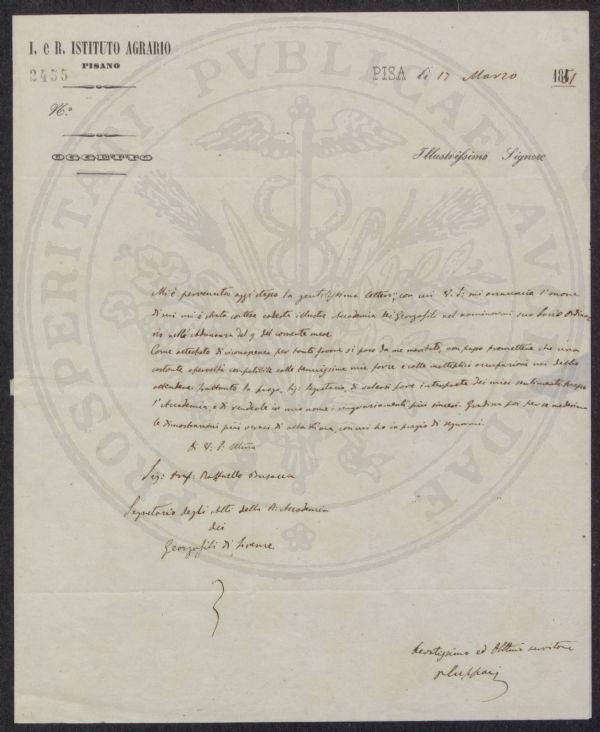 I. e R. ISTITUTO AGRARIO
PISANO
2455
PISA li 17 Marzo 1861
N.o
OGGETTO
Illustrissimo Signore
PROSPERITATI PVBLICAE AVGENDAE
Mi è pervenuta oggi stesso la gentilissima lettera, con cui V. S. mi annuncia l'onore
di cui mi è stata cortese codesta illustre Accademia dei Georgofili nel nominarmi suo Socio Ordina
rio nell'Adunanza del 9 del corrente mese.
Come attestato di riconoscenza per tanto favore sì poco da me meritato, non posso promettere che una
costante operosità compatibile colle tenuissime mie forze e colle molteplici occupazioni cui debbo
attendere. Frattanto la prego, Sig. Segretario, di volersi fare interprete dei miei sentimenti presso
l'Accademia, e di renderle in mio nome i ringraziamenti più sinceri. Gradisca poi per se medesimo
le dimostrazioni più veraci di alta stima, con cui ho in pregio di segnarmi.
Di V. S. Illma
Sig: Prof. Raffaello Busacca
Segretario degli Atti della R. Accademia
dei
Georgofili di Firenze
Devotissimo ed Obblmo servitore
PCuppari